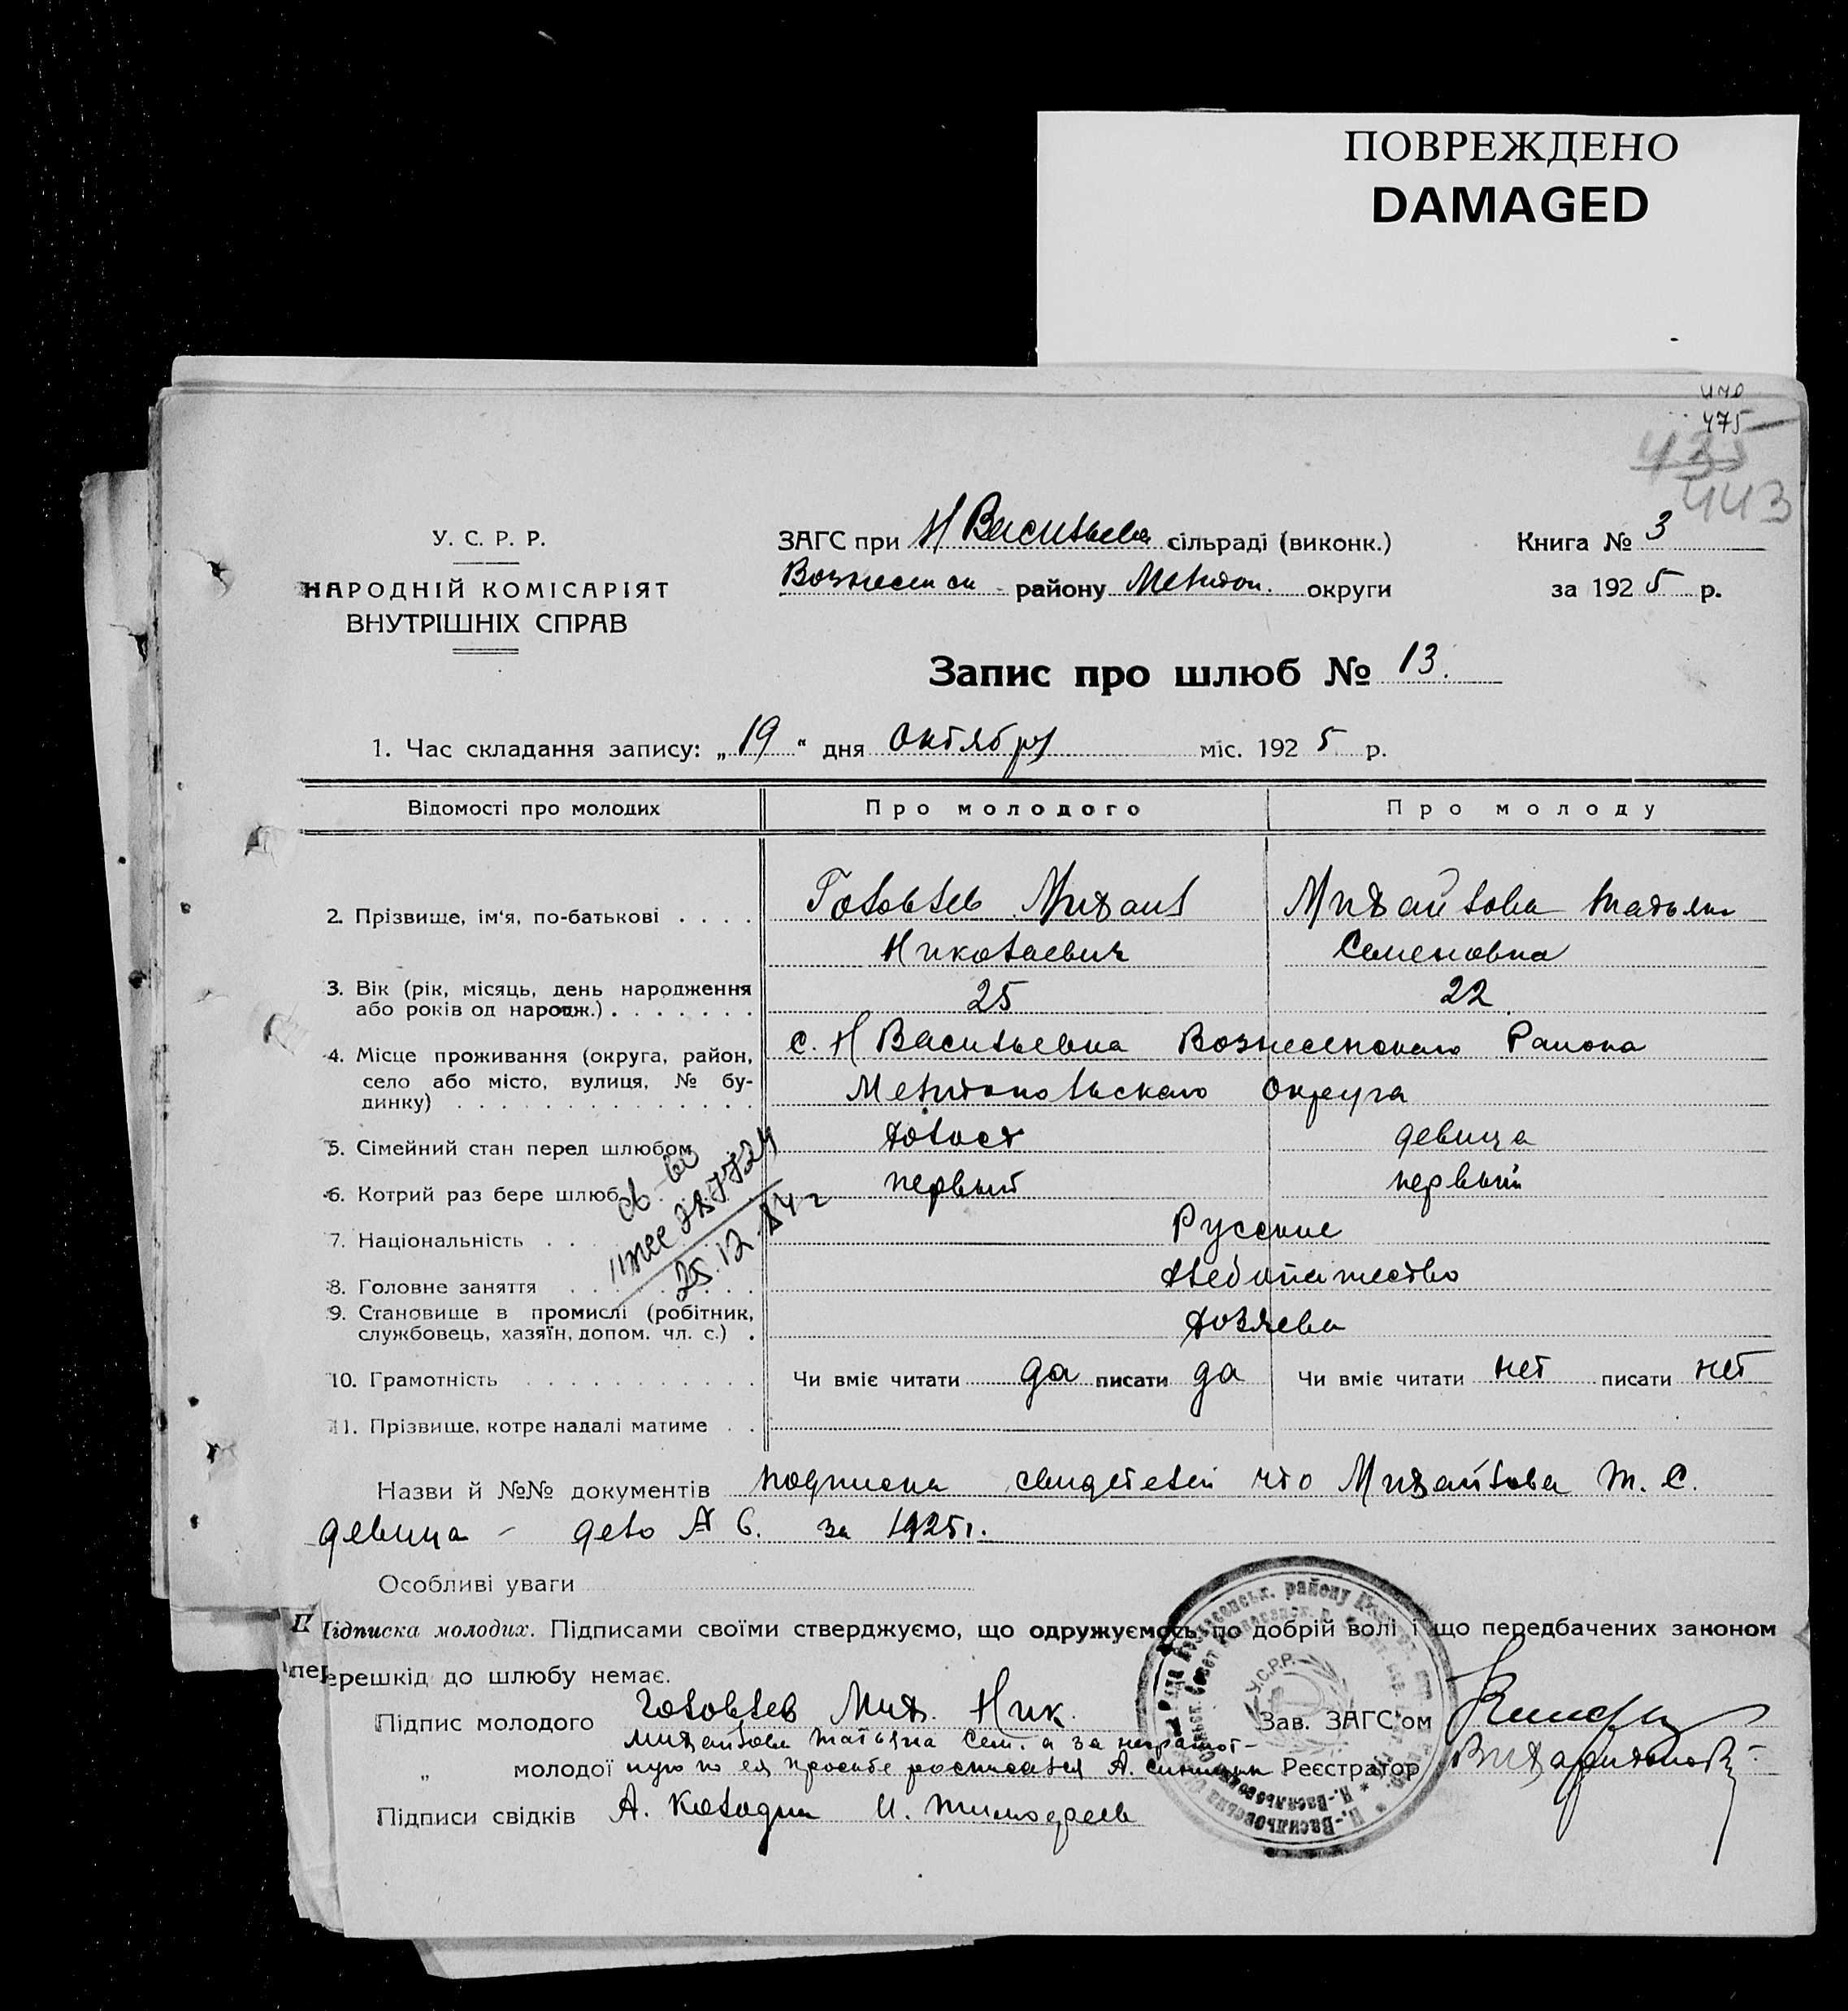 ПОВРЕЖДЕНО
DAMAGED
475
435
443
У. С. Р. Р.
НАРОДНІЙ КОМІСАРІЯТ
ВНУТРІШНІХ СПРАВ
ЗАГС при Н Васильевк сільраді (виконк.)
Вознесенск району Мелитоп. округи
Книга № 3
за 1925 р.
Запис про шлюб № 13.
1. Час складання запису: „19" дня Октября міс. 1925 р.
Відомості про молодих Про молодого Про молоду
2. Прізвище, ім'я, по-батькові . . . . Головлев Михаил Михайлова Татьяна
Николаевич Семеновна
3. Вік (рік, місяць, день народження
або років од народж.) . . . . . . . 25 22
4. Місце проживання (округа, район, с. Н Васильевка Вознесенскаго Района
село або місто, вулиця, № бу-
динку) . . . . . . . . . . . . . . Мелитопольскаго Округа
5. Сімейний стан перед шлюбом холост девица
6. Котрий раз бере шлюб первый первый
7. Національність . . Русские
8. Головне заняття . . . . . хлебопашество
9. Становище в промислі (робітник,
службовець, хазяїн, допом. чл. с.) . хозяева
10. Грамотність . . . . . . . . . . . Чи вміє читати да писати да Чи вміє читати нет писати нет
11. Прізвище, котре надалі матиме . .
25.12.84 г
Назви й №№ документів подписка свидетелей что Михайлова Т. С.
девица – дело № 6. за 1925 г.
Особливі уваги
Підписка молодих. Підписами своїми стверджуємо, що одружуємось по добрій волі і що передбачених законом
перешкід до шлюбу немає.
Підпис молодого Головлев Мих. Ник.
Михайлова Татьяна Сем. а за неграмот-
„ молодої ную по ея просьбе росписался А.
Підписи свідків А. Колодин И. Тимофеев
Зав. ЗАГС'ом
Реєстратор
У.С.Р.Р.